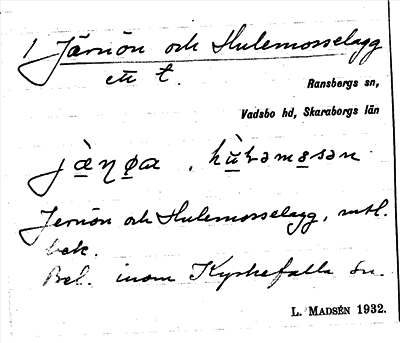 1 Järnön och Hulemosselagg
ett t.
Ransbergs sn,
Vadsbo hd, Skaraborgs län
Jernön och Hulemosselagg, mtl.
bek.
Bel. inom Kyrkefalla sn.
L. MADSÉN 1932.